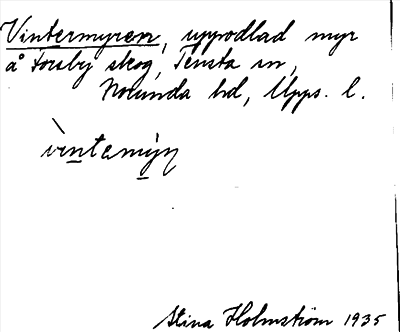 Vintermyren, uppodlad myr
å Forsby skog, Tensta sn,
Norunda hd, Upps. l.
vìntamýn
Stina Holmström 1935